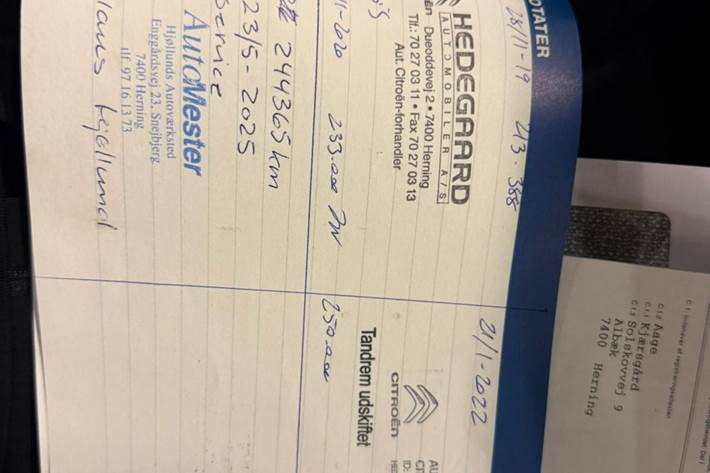 OTATER
28/11-19 213.388
HEDEGAARD
AUTOMOBILER A/S
Dueoddevej 2 • 7400 Herning
Tlf.: 70 27 03 11 • Fax 70 27 03 13
Aut. Citroën-forhandler
233.000
244365 km
23/5-2025
Service
AutoMester
Hjøllunds Autoværksted
Enggårdsvej 23, Snejbjerg
7400 Herning
tlf. 97 16 13 73
21/1-2022
CITROËN
Tandrem udskiftet
250.000
C.1.2 Aage
C.1.1 Kjærsgård
C.1.3 Solskovvej 9
Albæk
7400 Herning